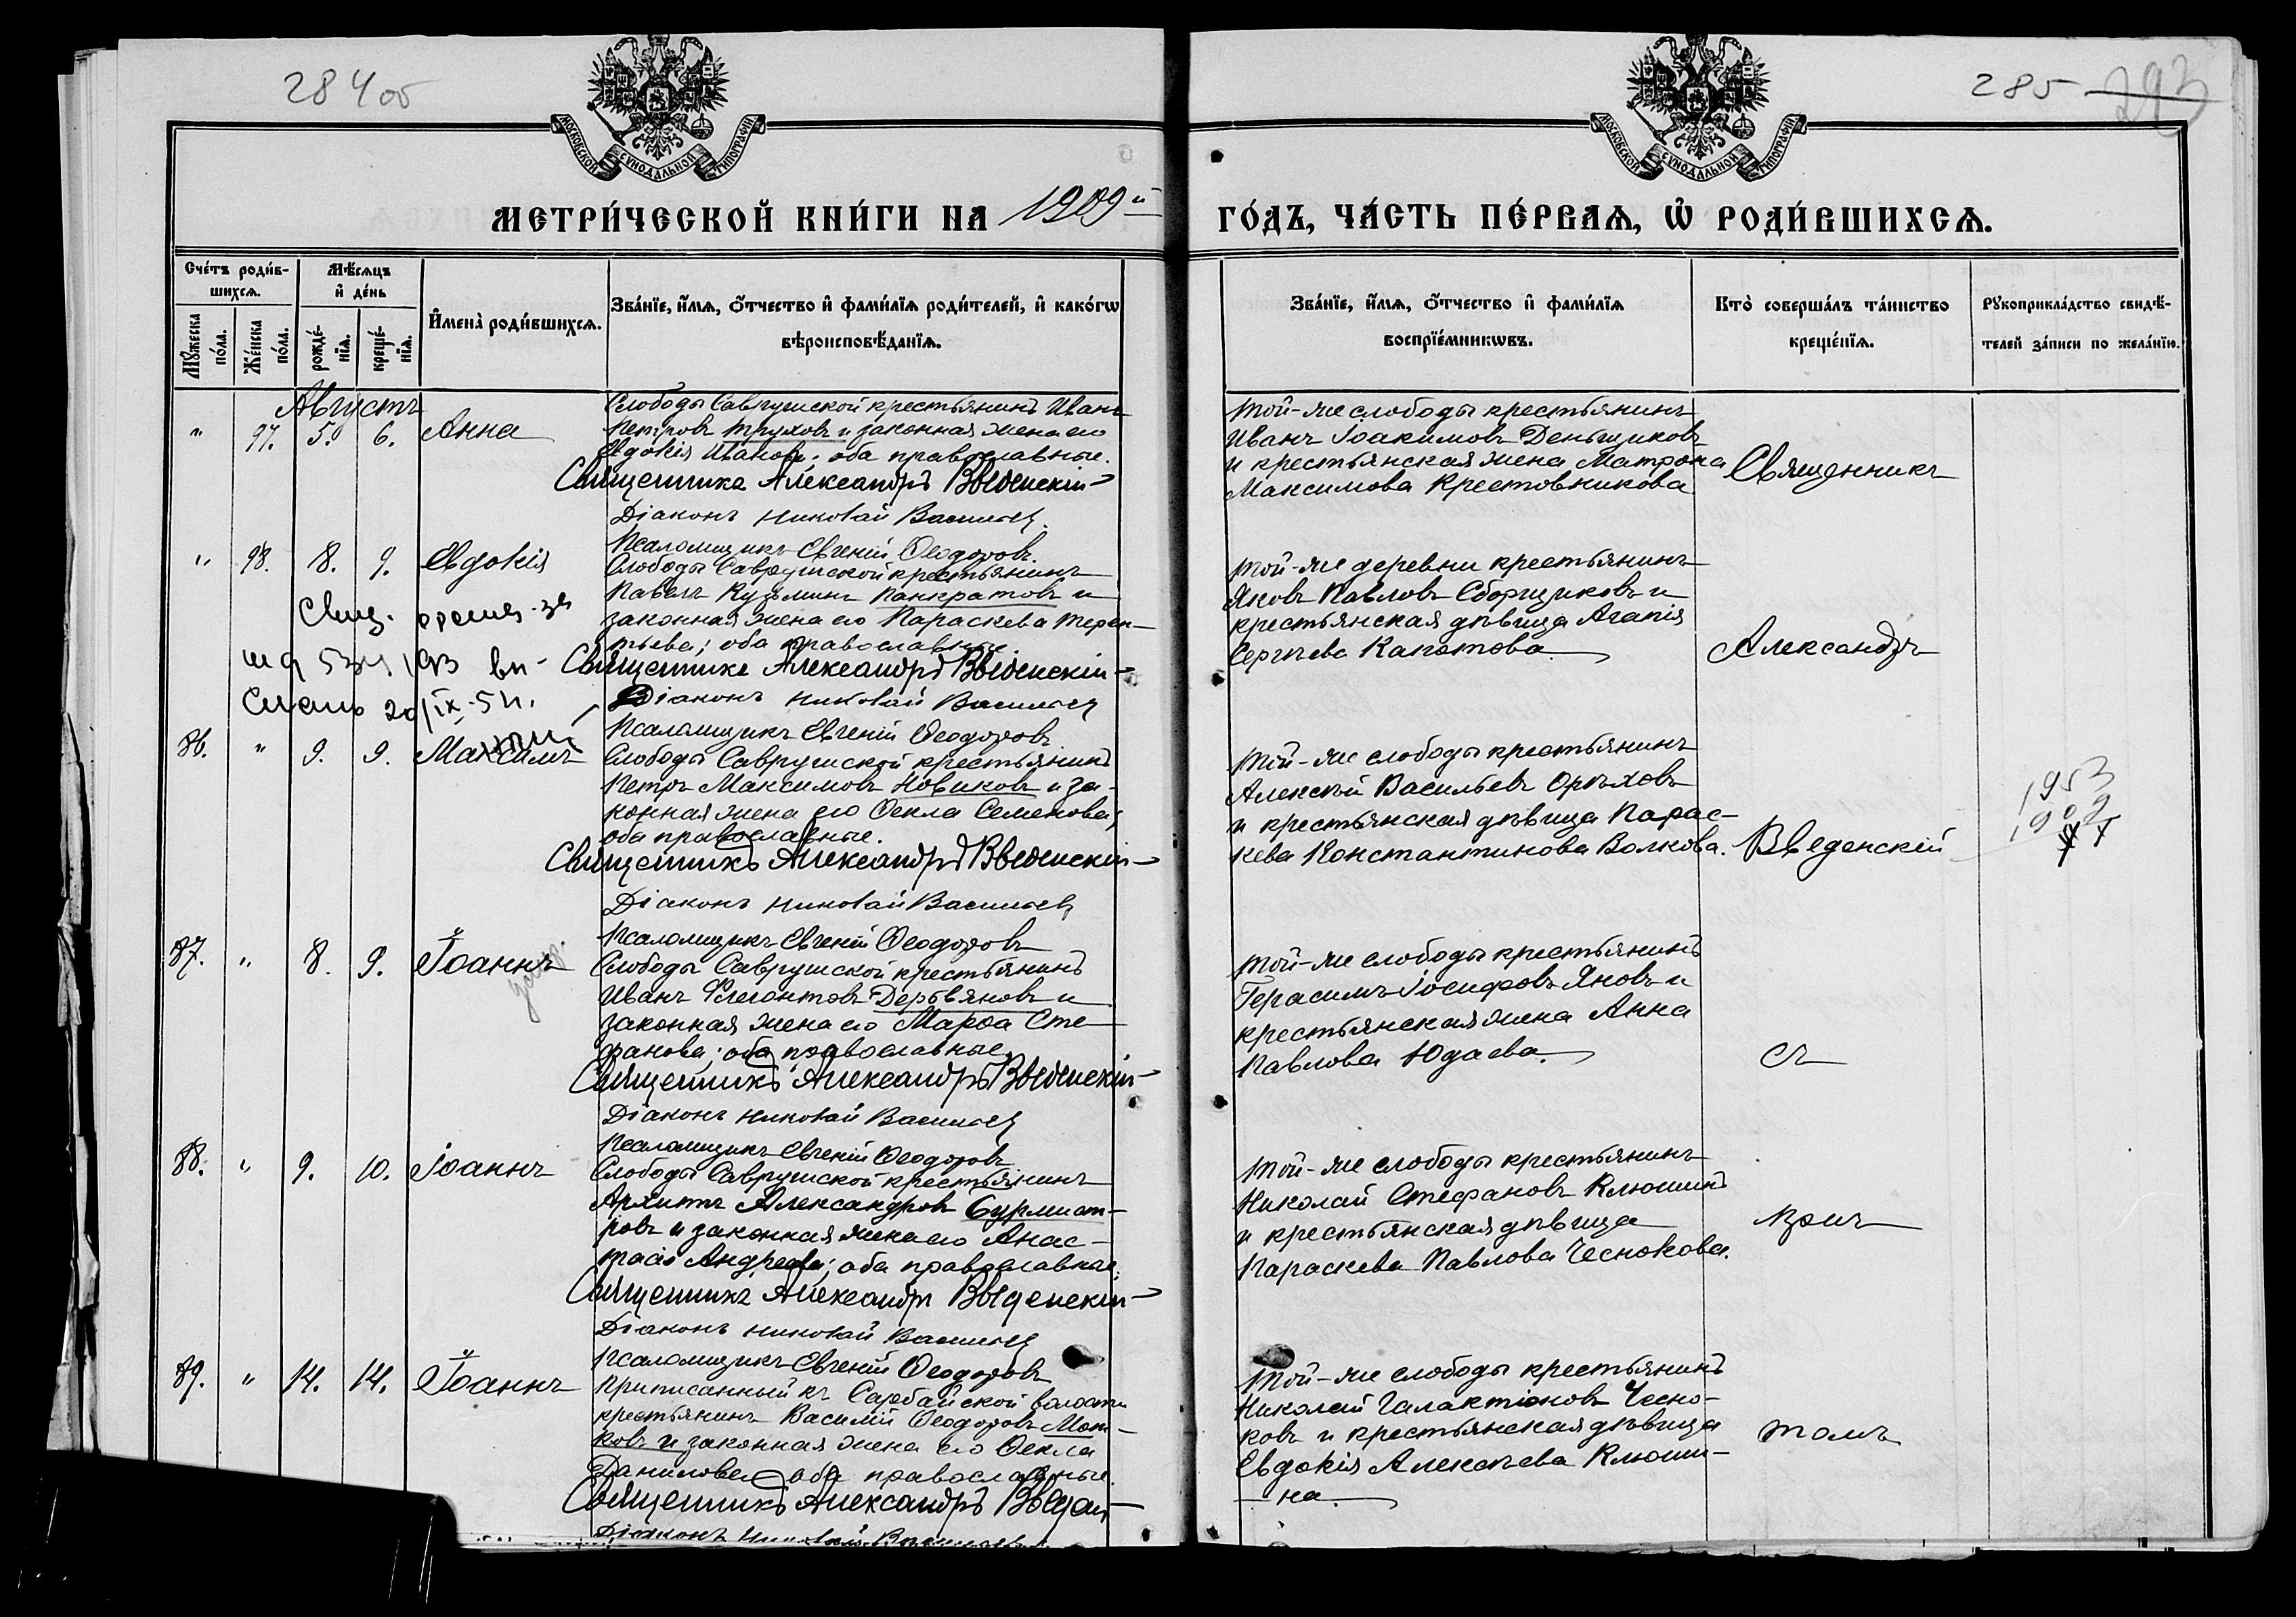 284 об
285
МОСКОВСКОЙ СУНОДАЛЬНОЙ ТИПОГРАФИИ
МОСКОВСКОЙ СУНОДАЛЬНОЙ ТИПОГРАФИИ
МЕТРИ́ЧЕСКОЙ КНИ́ГИ НА 1909й
ГО́ДЪ, ЧА́СТЬ ПЕ́РВАѦ, Ѡ҆ РОДИ́ВШИХСѦ.
Сче́тъ роди́в-
шихсѧ.
Мꙋ́жеска по́ла.
Же́нска по́ла.
Мѣ́сѧцъ
и҆ де́нь
рожде́-
нїѧ.
креще́-
нїѧ.
И҆мена̀ роди́вшихсѧ.
Зва́нїе, и҆́мѧ, ѻ҆́тчество и҆ фами́лїѧ роди́телей, и҆ како́гѡ
вѣроисповѣ́данїѧ.
Зва́нїе, и҆́мѧ, ѻ҆́тчество и҆ фами́лїѧ
воспрїе́мникѡвъ.
Кто̀ соверша́лъ та́инство
креще́нїѧ.
Рꙋкоприкла́дство свидѣ́-
телей за́писи по жела́нїю.
Августъ
" 97. 5. 6. Анна
Слободы Саврушской крестьянинъ Иванъ
Петровъ Труховъ и законная жена его
Евдокія Иванова; оба православные.
Священникъ Александръ Введенскій
Діаконъ Николай Васильевъ
Псаломщикъ Евгеній Ѳеодоровъ
Той-же слободы крестьянинъ
Иванъ Іоакимовъ Деньщиковъ
и крестьянская жена Матрона
Максимова Крестовникова
Священникъ
" 98. 8. 9. Евдокія
Слободы Саврушской крестьянинъ
Павелъ Кузьминъ Панкратовъ и
законная жена его Параскева Терен-
тьева; оба православные.
Священникъ Александръ Введенскій
Діаконъ Николай Васильевъ
Псаломщикъ Евгеній Ѳеодоровъ
Той-же деревни крестьянинъ
Яковъ Павловъ Сборщиковъ и
крестьянская дѣвица Агапія
Сергѣева Капотова
Александръ
20/IX-54.
86. " 9. 9. Максимъ
Слободы Саврушской крестьянинъ
Петръ Максимовъ Новиковъ и за-
конная жена его Ѳекла Семенова;
оба православные.
Священникъ Александръ Введенскій
Діаконъ Николай Васильевъ
Псаломщикъ Евгеній Ѳеодоровъ
Той-же слободы крестьянинъ
Алексѣй Васильевъ Орѣховъ
и крестьянская дѣвица Парас-
кева Константинова Волкова.
Введенскій
1953
1909
44
87. " 8. 9. Іоаннъ
Слободы Саврушской крестьянинъ
Иванъ Флегонтовъ Деревяновъ и
законная жена его Марѳа Сте-
фанова; оба православные.
Священникъ Александръ Введенскій
Діаконъ Николай Васильевъ
Псаломщикъ Евгеній Ѳеодоровъ
Той-же слободы крестьянинъ
Герасимъ Іосифовъ Яновъ и
крестьянская жена Анна
Павлова Юдаева.
съ
88. " 9. 10. Іоаннъ
Слободы Саврушской крестьянинъ
Архипъ Александровъ Бурмист-
ровъ и законная жена его Анас-
тасія Андреева; оба православные.
Священникъ Александръ Введенскій
Діаконъ Николай Васильевъ
Псаломщикъ Евгеній Ѳеодоровъ
Той-же слободы крестьянинъ
Николай Стефановъ Клюшинъ
и крестьянская дѣвица
Параскева Павлова Чеснокова.
прич
89. " 14. 14. Іоаннъ
Приписанный къ Сарбайской волости
крестьянинъ Василій Ѳеодоровъ Мот-
ковъ и законная жена его Ѳекла
Данилова; оба православные.
Священникъ Александръ Введен
Діаконъ Николай Васильевъ
Той-же слободы крестьянинъ
Николай Галактіоновъ Чесно-
ковъ и крестьянская дѣвица
Евдокія Алексѣева Клюши-
на.
томъ